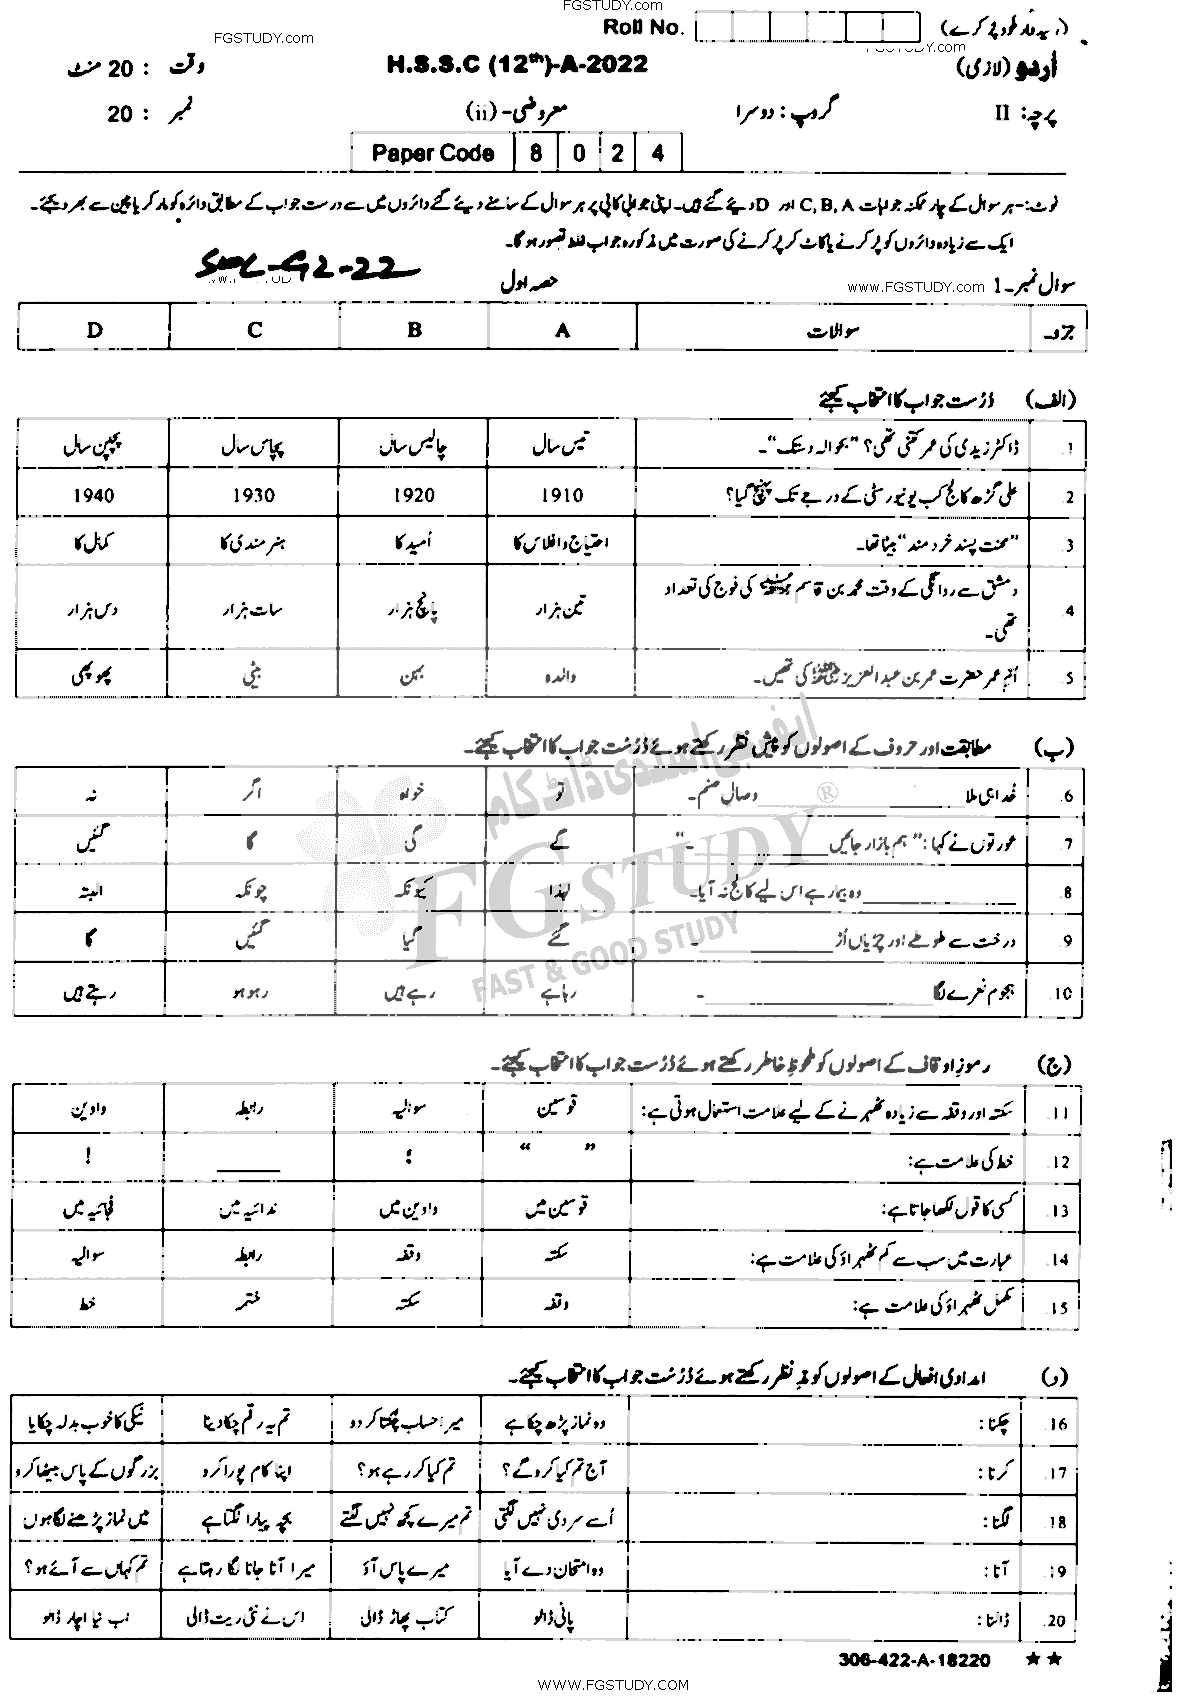 FGSTUDY.com
Roll No. (امیدوار خود پُر کرے)
FGSTUDY.com
FGSTUDY.com
اُردو (لازمی) H.S.S.C (12th)-A-2022 وقت : 20 منٹ
پرچہ: II گروپ: دوسرا معروضی-(ii) نمبر : 20
Paper Code 8 0 2 4
نوٹ:-ہر سوال کے چار ممکنہ جوابات C, B, A اور D دیئے گئے ہیں۔ اپنی جوابی کاپی پر ہر سوال کے سامنے دیئے گئے دائروں میں سے درست جواب کے مطابق دائرہ کو مارکر یا پین سے بھر دیجئے۔
ایک سے زیادہ دائروں کو پُر کرنے یا کاٹ کر پُر کرنے کی صورت میں مذکورہ جواب غلط تصور ہوگا۔
-G2-22
سوال نمبر۔1 www.FGSTUDY.com حصہ اول
جزو۔ سوالات A B C D
(الف) دُرست جواب کا انتخاب کیجئے
.1 ڈاکٹر زیدی کی عمر کتنی تھی؟ "بحوالہ دستک"۔ تیس سال چالیس سال پچاس سال پچپن سال
.2 علی گڑھ کالج کب یونیورسٹی کے درجے تک پہنچ گیا؟ 1910 1920 1930 1940
.3 "محنت پسند خرد مند" بیٹا تھا۔ احتیاج و افلاس کا اُمید کا ہنر مندی کا کمال کا
.4 دمشق سے روانگی کے وقت محمد بن قاسم کی فوج کی تعداد تین ہزار پانچ ہزار سات ہزار دس ہزار
تھی۔
.5 اُمِ عمر حضرت عمر بن عبدالعزیز کی تھیں۔ والدہ بہن بیٹی پھوپھی
(ب) مطابقت اور حروف کے اصولوں کو پیش نظر رکھتے ہوئے دُرست جواب کا انتخاب کیجئے۔
.6 خُدا ہی ملا ________ وصالِ صنم۔ تو خواہ اگر نہ
.7 عورتوں نے کہا: "ہم بازار جائیں ________ ۔" گے گی گا گئیں
.8 ________ وہ بیمار ہے اس لیے کالج نہ آیا۔ لہٰذا کیونکہ چونکہ البتہ
.9 درخت سے طوطے اور چڑیاں اُڑ ________ ۔ گئے گیا گئیں گا
.10 ہجوم نعرے لگا ________ ۔ رہا ہے رہے ہیں رہو ہو رہتے ہیں
(ج) رموزِ اوقاف کے اصولوں کو ملحوظِ خاطر رکھتے ہوئے دُرست جواب کا انتخاب کیجئے۔
.11 سکتہ اور وقفہ سے زیادہ ٹھہرنے کے لیے علامت استعمال ہوتی ہے: قوسین سوالیہ رابطہ واوین
.12 خط کی علامت ہے: " " ؛ ______ !
.13 کسی کا قول لکھا جاتا ہے: قوسین میں واوین میں ندائیہ میں فجائیہ میں
.14 عبارت میں سب سے کم ٹھہراؤ کی علامت ہے: سکتہ وقفہ رابطہ سوالیہ
.15 مکمل ٹھہراؤ کی علامت ہے: وقفہ سکتہ ختمہ خط
(د) امدادی افعال کے اصولوں کو مدِ نظر رکھتے ہوئے دُرست جواب کا انتخاب کیجئے۔
.16 چکنا: وہ نماز پڑھ چکا ہے میرا حساب چُکتا کر دو تم یہ رقم چکا دینا نیکی کا خوب بدلہ چکایا
.17 کرنا: آج تم کیا کرو گے؟ تم کیا کر رہے ہو؟ اپنا کام پورا کرو بزرگوں کے پاس بیٹھا کرو
.18 لگنا: اُسے سردی نہیں لگتی تم میرے کچھ نہیں لگتے بچہ پیارا لگتا ہے میں نماز پڑھنے لگا ہوں
.19 آنا: وہ امتحان دے آیا میرے پاس آؤ میرا آنا جانا لگا رہتا ہے تم کہاں سے آئے ہو؟
.20 ڈالنا: پانی ڈالو کتاب پھاڑ ڈالی اس نے نئی ریت ڈالی اب نیا اچار ڈالو
ایف جی اسٹڈی ڈاٹ کام
FG STUDY ®
FAST & GOOD STUDY
306-422-A-18220 ★★
WWW.FGSTUDY.COM